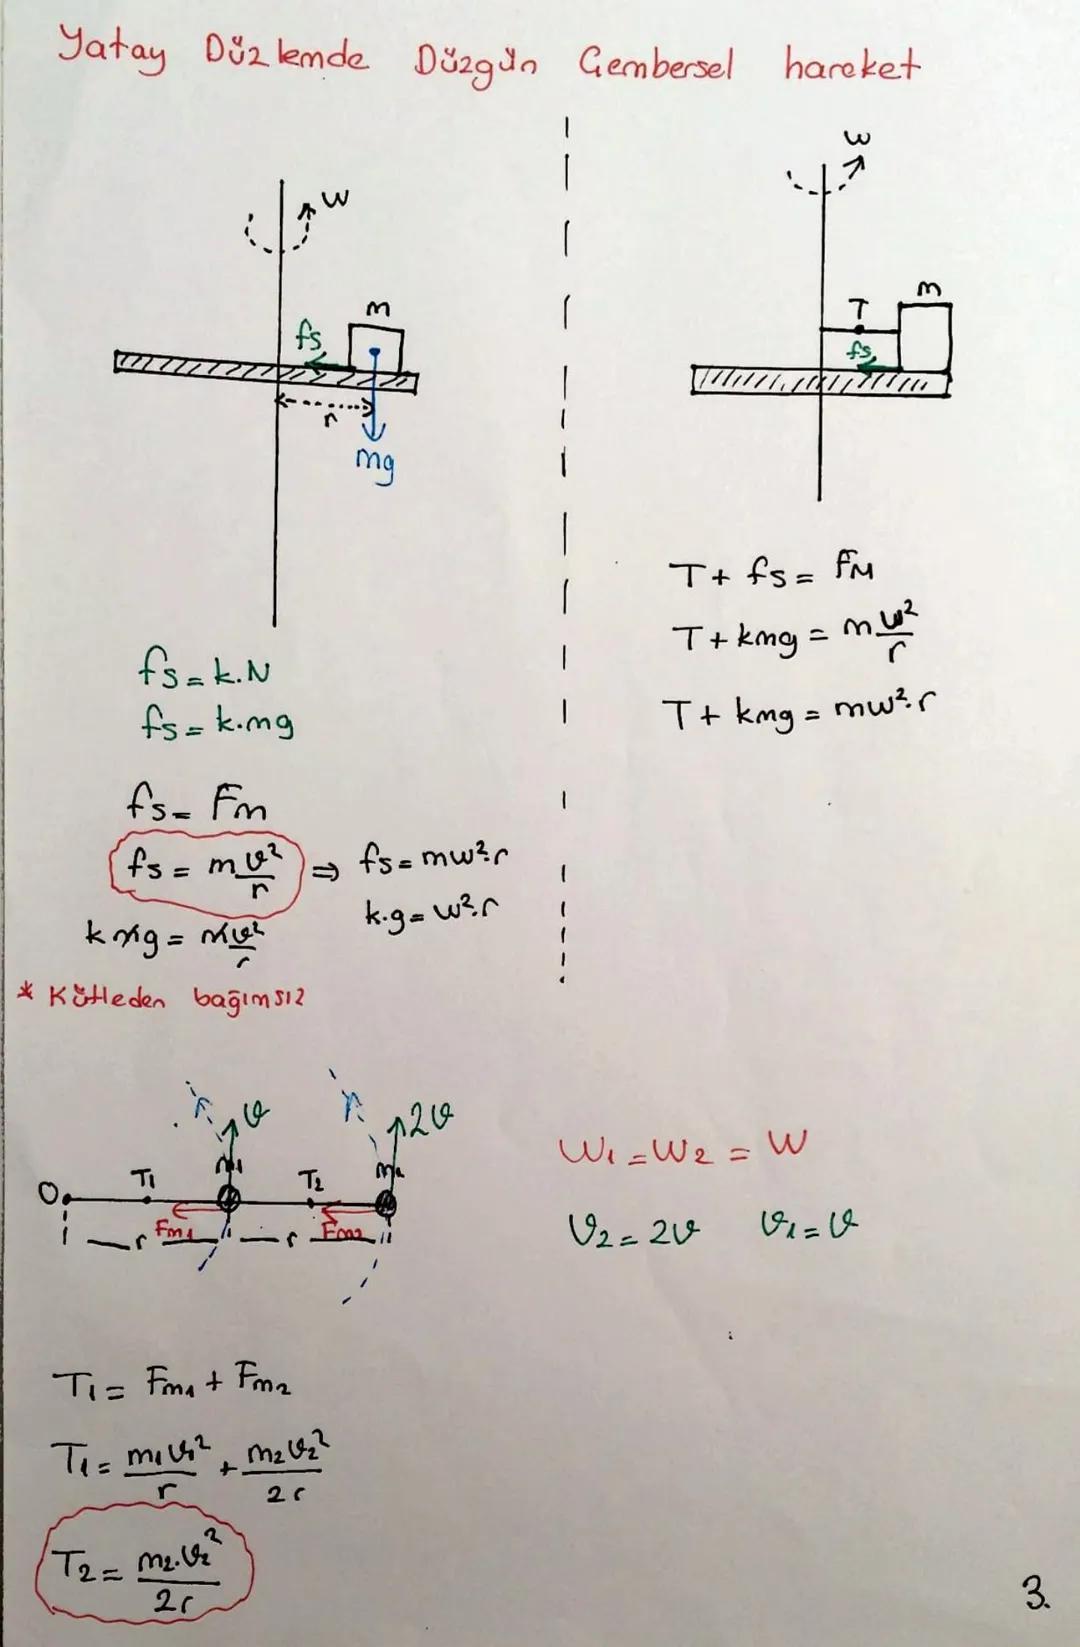 Yatay Düzlemde Düzgün Çembersel hareket
w
m
fs
r
mg
fs = k.N
fs = k.mg
fs = Fm
fs = mϑ²/r ⇒ fs = mw².r
k.g = w².r
kmg = mϑ²/r
* Kütleden bağımsız
w
m
T
fs
T + fs = FM
T + kmg = mw²/r
T + kmg = mw².r
ϑ 2ϑ
O T1 m1 T2 m2
Fm1 Fm2
r r
W1 = W2 = W
ϑ2 = 2ϑ ϑ1 = ϑ
T1 = Fm1 + Fm2
T1 = m1ϑ1²/r + m2ϑ2²/2r
T2 = m2.ϑ2²/2r
3.